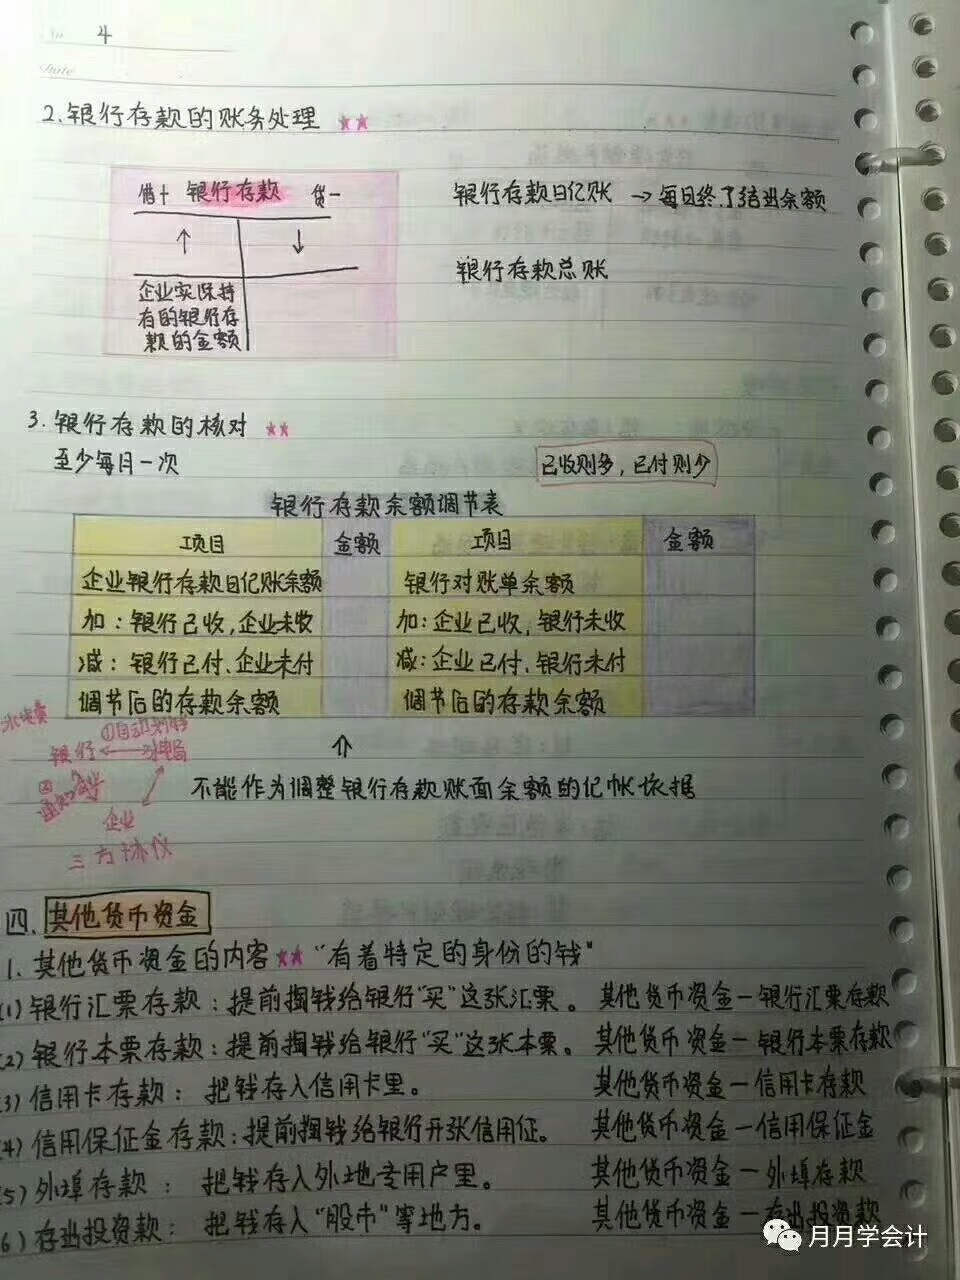 No 4
Date
2.银行存款的账务处理 ★★
借+ 银行存款 贷-
↑ ↓
企业实际持
有的银行存
款的金额
银行存款日记账 → 每日终了结出余额
银行存款总账
3.银行存款的核对 ★★
至少每月一次
已收则多,已付则少
银行存款余额调节表
项目 金额 项目 金额
企业银行存款日记账余额 银行对账单余额
加:银行已收,企业未收 加:企业已收,银行未收
减:银行已付、企业未付 减:企业已付、银行未付
调节后的存款余额 调节后的存款余额
水电费
①自动划转
银行 电局
②
通知
企业
三方协议
不能作为调整银行存款账面余额的记帐依据
四.其他货币资金
1.其他货币资金的内容★★ "有着特定的身份的钱"
(1)银行汇票存款:提前掏钱给银行"买"这张汇票。 其他货币资金—银行汇票存款
(2)银行本票存款:提前掏钱给银行"买"这张本票。 其他货币资金—银行本票存款
(3)信用卡存款: 把钱存入信用卡里。 其他货币资金—信用卡存款
(4)信用保证金存款:提前掏钱给银行开张信用证。 其他货币资金—信用保证金
(5)外埠存款: 把钱存入外地专用户里。 其他货币资金—外埠存款
(6)存出投资款: 把钱存入"股市"等地方。 其他货币资金—存出投资款
月月学会计